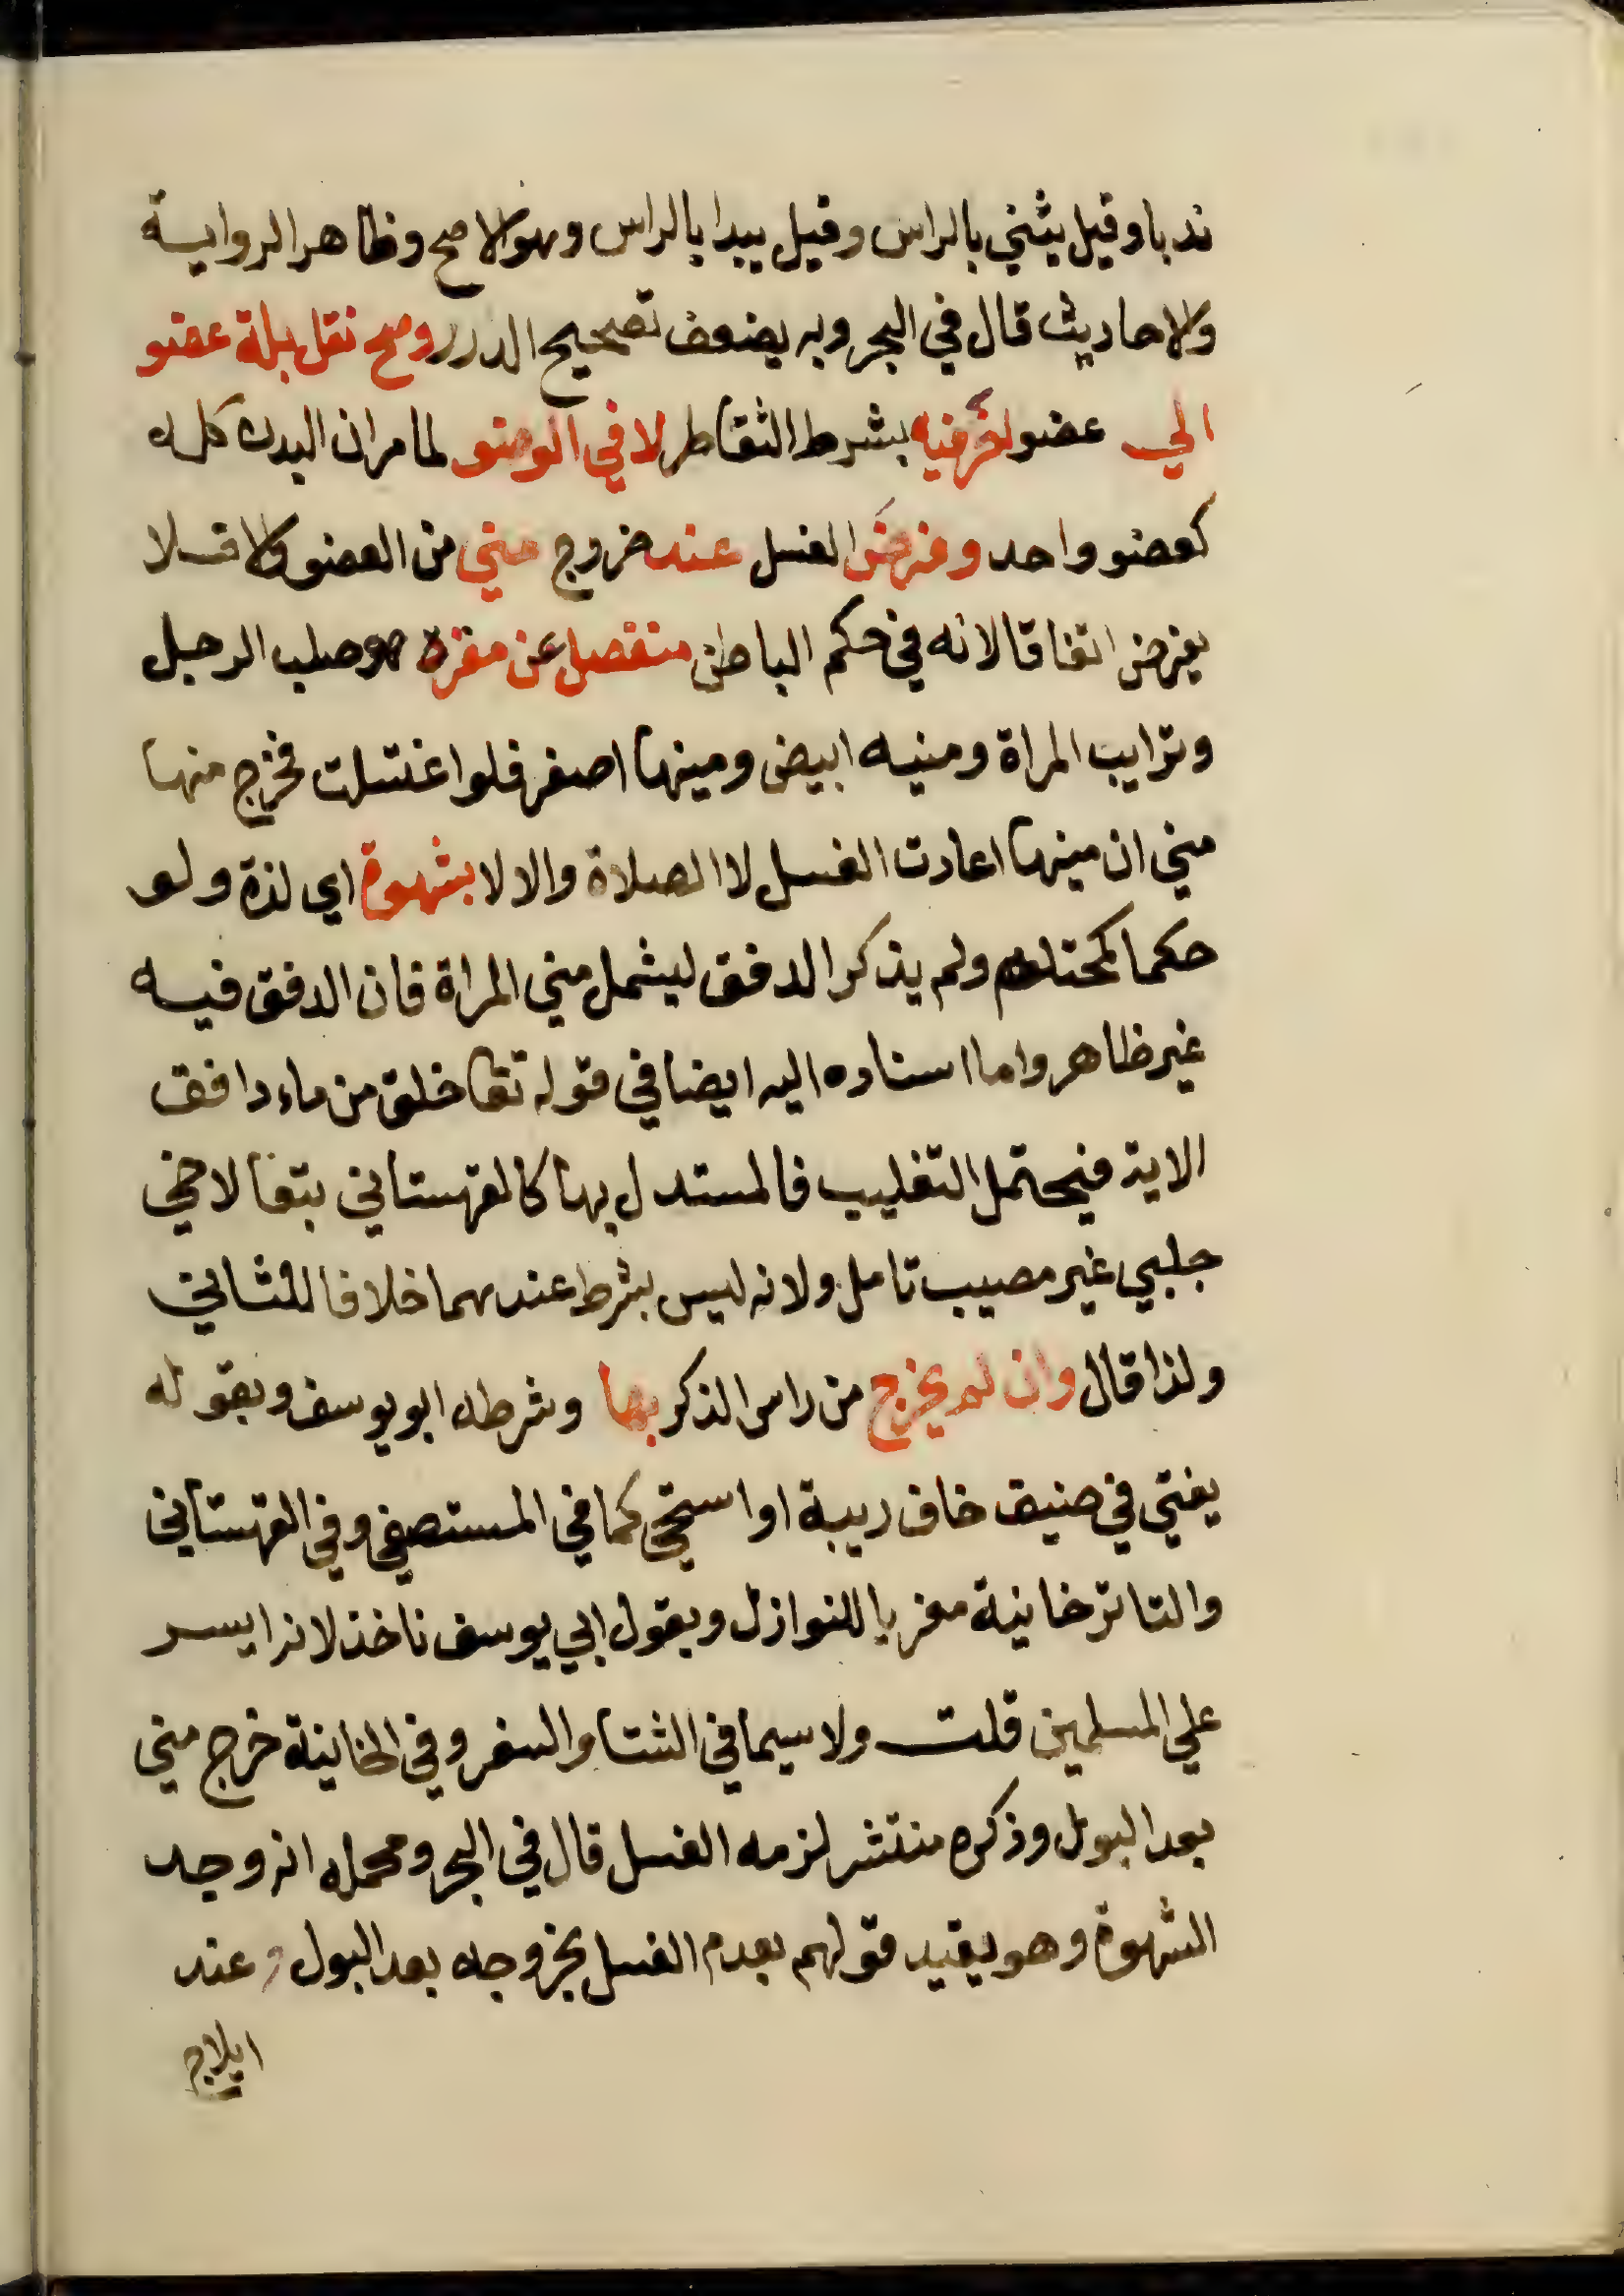 ندبا وقيل يثني بالراس وقيل يبدا بالراس وهو الاصح وظاهر الرواية
والاحاديث قال في البحر وبه يضعف تصحيح الدرر وصح نقل بلة عضو
الي عضو اخر فيه بشرط التقاطر لا في الوضو لما مر ان البدن كله
كعضو واحد وفرض الغسل عند خروج مني من العضو والا فلا
يفرض اتفاقا لانه في حكم الباطن منفصل عن مقره هو صلب الرجل
وترايب المراة ومنيه ابيض ومنيها اصفر فلو اغتسلت فخرج منها
مني ان منيها اعادت الغسل لا الصلاة والا لا بشهوة اي لذة ولو
حكما كمحتلم ولم يذكر الدفق ليشمل مني المراة فان الدفق فيه
غير ظاهر واما اسناده اليه ايضا في قوله تعا خلق من ماء دافق
الاية فيحتمل التغليب فالمستدل بها كالقهستاني تبعا لاخي
جلبي غير مصيب تامل ولانه ليس بشرط عندهما خلافا للثاني
ولذا قال وان لم يخرج من راس الذكر بها وشرطه ابو يوسف وبقوله
يفتي في ضيف خاف ريبة او استحي كما في المستصفي وفي القهستاني
والتاترخانية معزيا للنوازل وبقول ابي يوسف ناخذ لانه ايسر
علي المسلمين قلت ولا سيما في الشتا والسفر وفي الخانية خرج مني
بعد البول وذكره منتشر لزمه الغسل قال في البحر ومحمله ان وجد
الشهوة وهو يقيد قولهم بعدم الغسل بخروجه بعد البول وعند
ايلاج